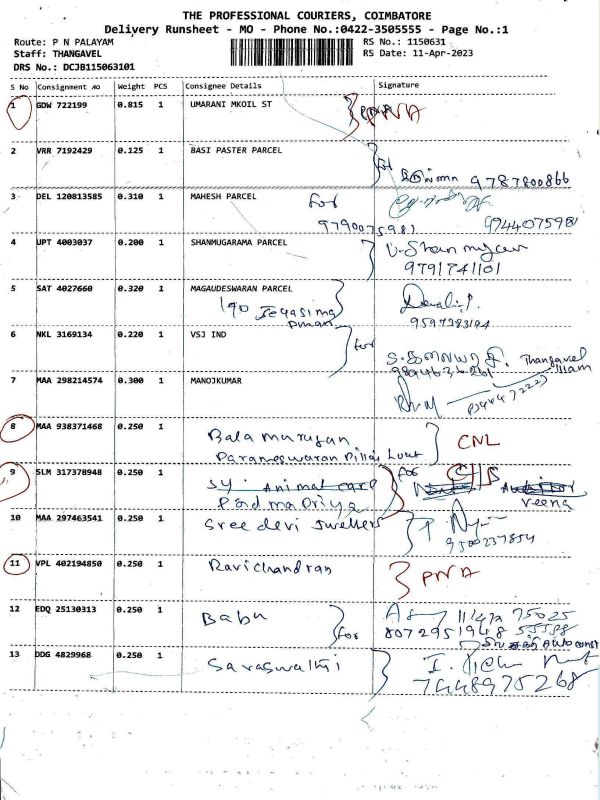 THE PROFESSIONAL COURIERS, COIMBATORE
Delivery Runsheet - MO - Phone No.:0422-3505555 - Page No.:1
Route: P N PALAYAM
RS No.: 1150631
Staff: THANGAVEL
RS Date: 11-Apr-2023
DRS No.: DCJB115063101
S No Consignment no Weight PCS Consignee Details Signature
1 GDW 722199 0.815 1 UMARANI MKOIL ST PNA
2 VRR 7192429 0.125 1 BASI PASTER PARCEL
for 9787800866
3 DEL 120813585 0.310 1 MAHESH PARCEL for
9790075981 9944075981
4 UPT 4003037 0.200 1 SHANMUGARAMA PARCEL
9791741101
5 SAT 4027660 0.320 1 MAGAUDESWARAN PARCEL
190
6 NKL 3169134 0.220 1 VSJ IND for
Thangavel
7 MAA 298214574 0.300 1 MANOJKUMAR
8 MAA 938371468 0.250 1
Bala murugan CNL
Parameswaran Pillai
9 SLM 317378948 0.250 1 for C/S
Padma Priya Veena
10 MAA 297463541 0.250 1 Sree devi Jwellers
9500237854
11 VPL 402194850 0.250 1 Ravichandran PNA
12 EDQ 25130313 0.250 1 Babu for
8072951948
13 DDG 4829968 0.250 1 Saraswathi
7448975268